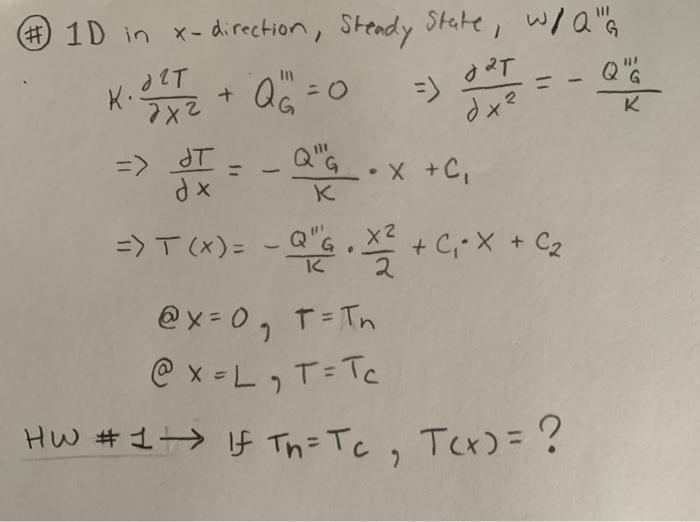 # 1D in x-direction, Steady State, w/ Q'''G
K · ∂²T/∂x² + Q'''G = 0 => ∂²T/∂x² = - Q'''G/K
=> ∂T/∂x = - Q'''G/K · x + C₁
=> T(x) = - Q'''G/K · x²/2 + C₁·x + C₂
@ x = 0, T = Th
@ x = L, T = Tc
HW #1 → If Th = Tc, T(x) = ?